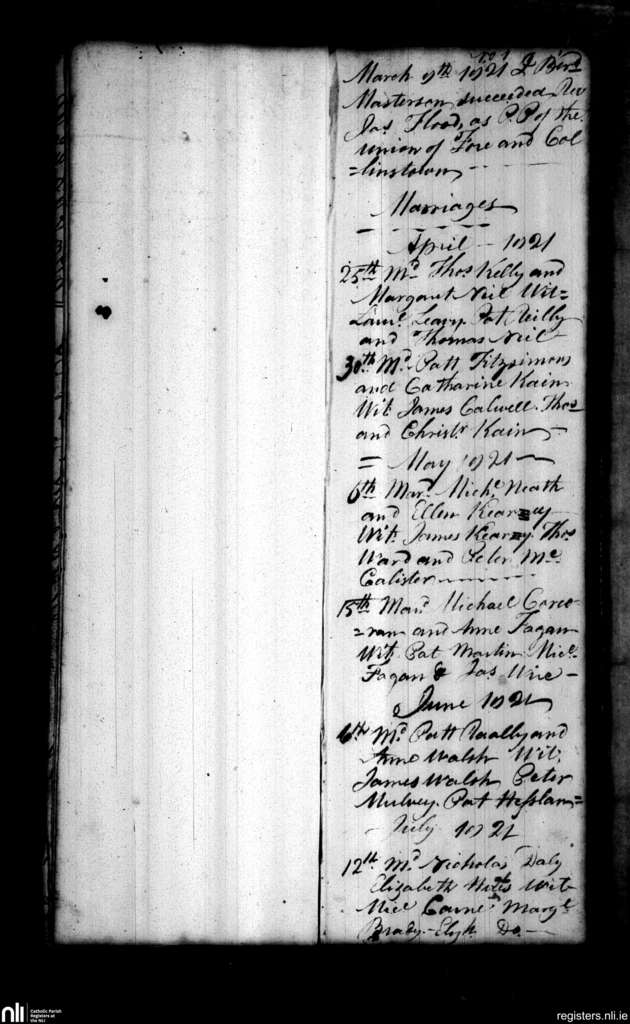 No 1
March 9th 1821 I Bernd
Masterson succeeded Rev
Jas Flood, as P.P of the
union of Fore and Col
=linstown
Marriages
April 1821
25th Md Thos Kelly and
Margaret Neil Wit=
Laurce Leavy Pat Reilly
and Thomas Neil
30th Md Patt Fitzsimons
and Catharine Kain
Wit James Calwell Thos
and Christr Kain
= May 1821
6th Mard Michl Neath
and Ellen Kearney
Wit. James Kearney Thos
Ward and Peter Mc
Calister
15th Mard Michael Corco-
=ran and Anne Fagan
Wit Pat Martin Micl
Fagan & Jas
June 1821
6th Md Patt Really and
Anne Walsh Wit.
James Walsh Peter
Mulvey. Pat
July 1821
12th Md Nicholas Daly
Elizabeth Wit
Micl Margt
Brady. Do
nli
Catholic Parish
Registers at
the NLI
registers.nli.ie